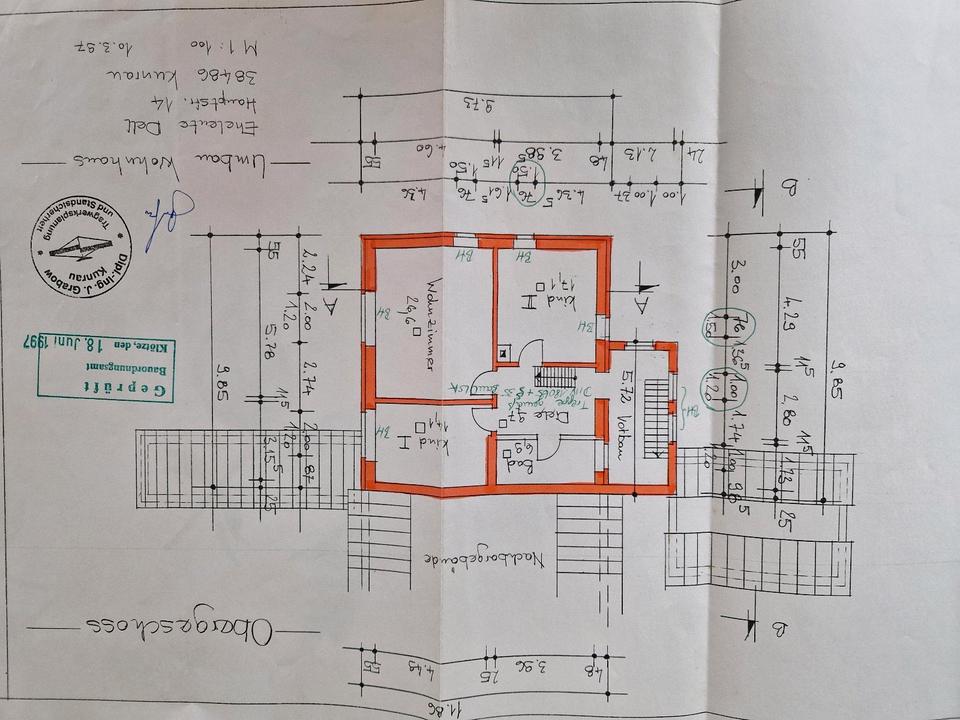 Obergeschoss
Nachbargebäude
Umbau Wohnhaus
Eheleute Dell
Hauptstr. 14
38486 Kunrau
M 1:100 10.3.97
Dipl.-Ing. J. Grabow
Kunrau
Tragwerksplanung
und Standsicherheit
Geprüft
Bauordnungsamt
Klötze, den 18. Juni 1997
Wohnzimmer
26,6
Kind II
17,1
Kind I
17,1
Diele 9,7
Bad
6,9
5.72 Vorbau
Treppe gemäß
BH
BH
BH
BH
BH
BH
A
A
B
B
11.86
55
4.49
25
3.96
48
9.73
55
4.60
11⁵
3.98⁵
48
2.13
24
4.36
76
1.50
1.61⁵
76
1.50
4.36⁵
1.00
1.00
9.85
55
5.78
11⁵
3.15⁵
25
2.24
2.00
1.20
2.74
2.00
1.20
87
3.00
76
1.50
1.36⁵
1.00
1.20
1.74
1.00
1.20
55
4.29
11⁵
2.80
11⁵
1.73
25
9.85